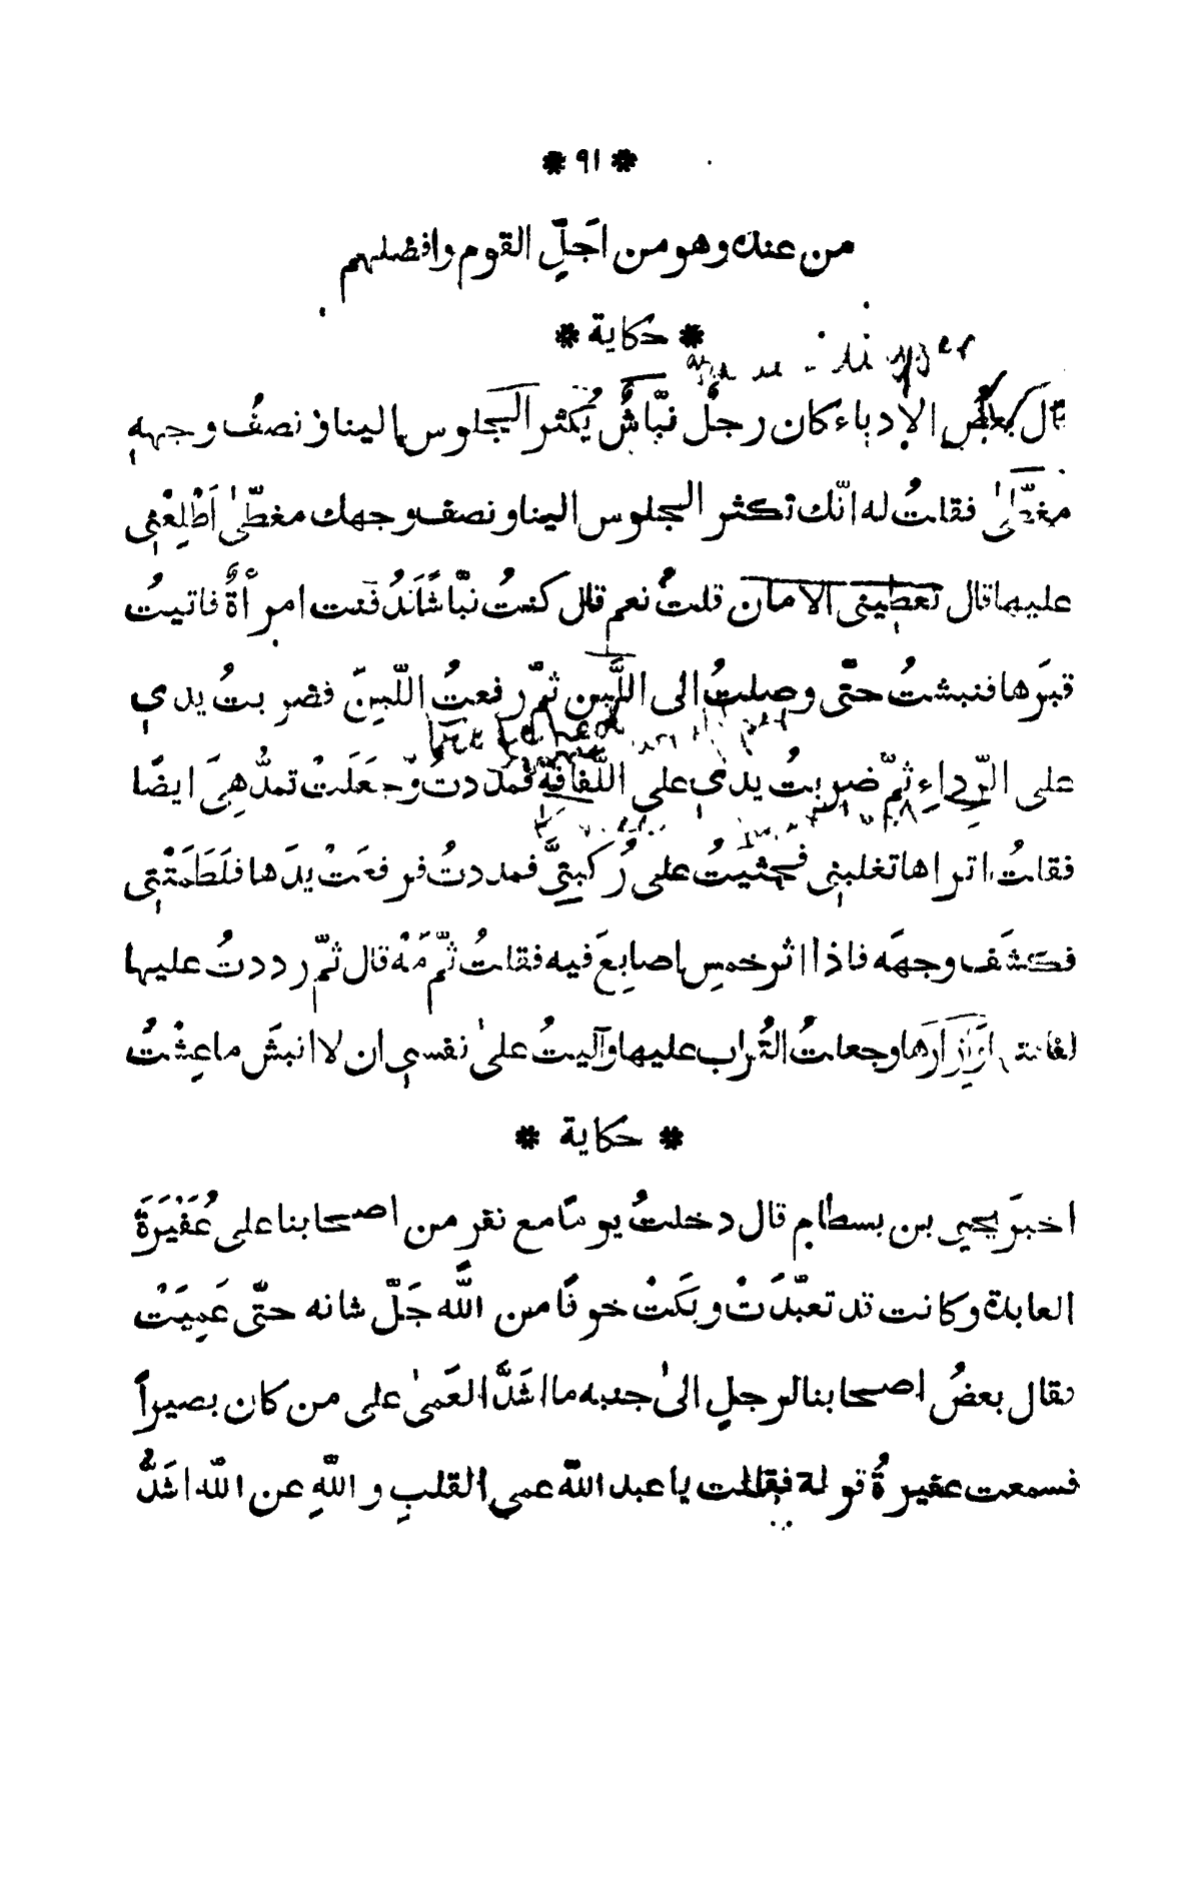 * ٩١ *
من عنده وهو من اَجَلِّ القوم وافضلهم
* حكاية *
قال بعضُ الادباء كان رجلٌ نبّاشٌ يُكثر الجلوس الينا و نصفُ وجهه
مغطّىٰ فقلتُ له انّك تكثر الجلوس الينا و نصف وجهك مغطّىٰ اَطْلِعْنِي
عليها قال تعطيني الامان قلتُ نعم قال كنتُ نبّاشًا فدُفنت امرأةٌ فاتيتُ
قبرَها فنبشتُ حتّى وصلتُ الى اللَّبِن ثمّ رفعتُ اللّبِنَ فضربتُ يدي
على الرِّداءِ ثمّ ضربتُ يدي على اللَّفافةِ فمددتُ وّجعَلَتْ تمدُّ هِيَ ايضًا
فقلتُ اتراها تغلبني فجثيتُ على رُكبتيَّ فمددتُ فرفعَتْ يدَها فلَطَمَتْنِي
فكشَف وجهَه فاذا اثر خمسِ اصابِعَ فيه فقلتُ ثمّ مَهْ قال ثمّ رددتُ عليها
وجعلتُ التُراب عليها وآليتُ علىٰ نفسي ان لا انبشَ ما عِشْتُ
* حكاية *
اخبرَ يحيى بن بسطامِ قال دخلتُ يومًا مع نفرٍ من اصحابنا على عُفَيْرَةَ
العابدة وكانت قد تعبّدَتْ و بكَتْ خوفًا من اللّه جَلّ شانه حتّى عَمِيَتْ
فقال بعضُ اصحابنا لرجلٍ الىٰ جنبه ما اشَدَّ العَمىٰ على من كان بصيراً
فسمعت عفيرةُ قوله فقالت يا عبد اللّه عمى القلبِ و اللّهِ عن اللّه اشَدُّ